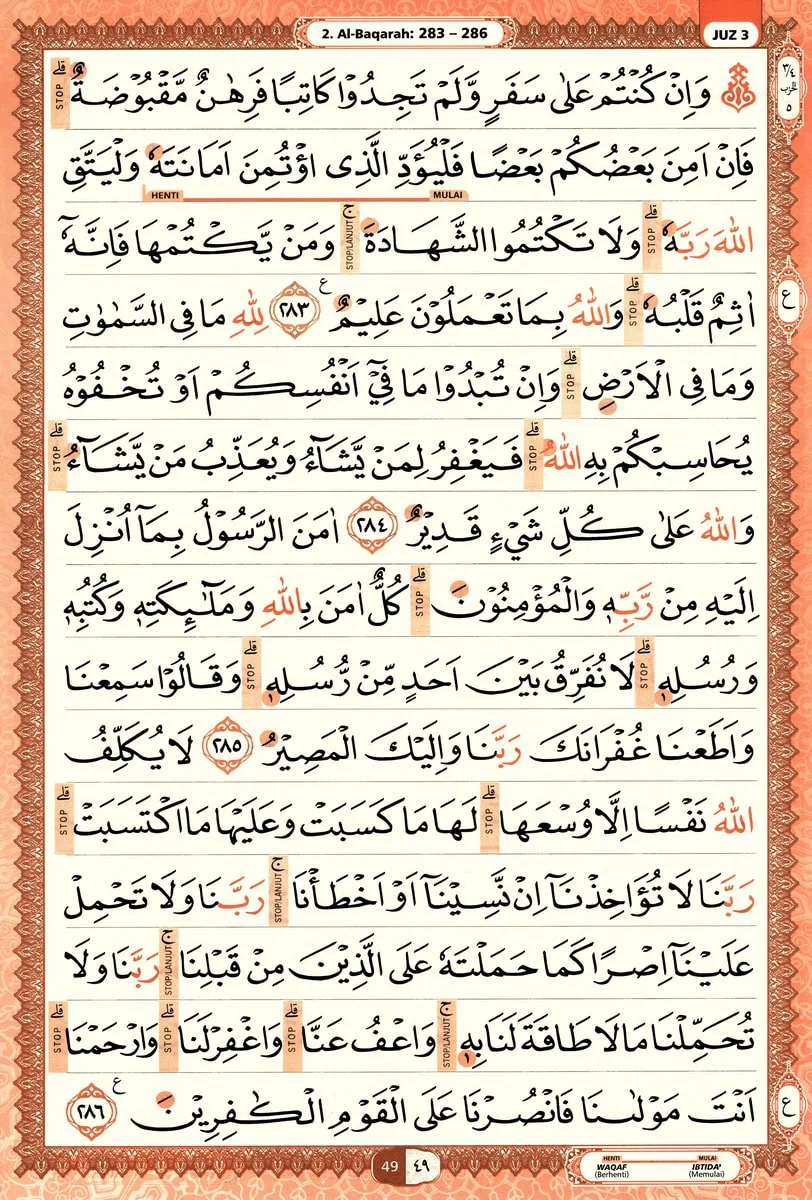 2. Al-Baqarah: 283 – 286
JUZ 3
٣/٤ الحزب ٥
وَاِنْ كُنْتُمْ عَلٰى سَفَرٍ وَّلَمْ تَجِدُوْا كَاتِبًا فَرِهٰنٌ مَّقْبُوْضَةٌ ۗ STOP
فَاِنْ اَمِنَ بَعْضُكُمْ بَعْضًا فَلْيُؤَدِّ الَّذِى اؤْتُمِنَ اَمَانَتَهٗ وَلْيَتَّقِ
MULAI HENTI
اللّٰهَ رَبَّهٗ ۗ STOP وَلَا تَكْتُمُوا الشَّهَادَةَ ۚ STOP/LANJUT وَمَنْ يَّكْتُمْهَا فَاِنَّهٗٓ
اٰثِمٌ قَلْبُهٗ ۗ STOP وَاللّٰهُ بِمَا تَعْمَلُوْنَ عَلِيْمٌ ٢٨٣ ع لِلّٰهِ مَا فِى السَّمٰوٰتِ
ع
وَمَا فِى الْاَرْضِ ۗ STOP وَاِنْ تُبْدُوْا مَا فِيْٓ اَنْفُسِكُمْ اَوْ تُخْفُوْهُ
يُحَاسِبْكُمْ بِهِ اللّٰهُ ۗ STOP فَيَغْفِرُ لِمَنْ يَّشَاۤءُ وَيُعَذِّبُ مَنْ يَّشَاۤءُ ۗ STOP
وَاللّٰهُ عَلٰى كُلِّ شَيْءٍ قَدِيْرٌ ٢٨٤ اٰمَنَ الرَّسُوْلُ بِمَآ اُنْزِلَ
اِلَيْهِ مِنْ رَّبِّهٖ وَالْمُؤْمِنُوْنَ ۗ STOP كُلٌّ اٰمَنَ بِاللّٰهِ وَمَلٰۤىِٕكَتِهٖ وَكُتُبِهٖ
وَرُسُلِهٖ ۗ STOP لَا نُفَرِّقُ بَيْنَ اَحَدٍ مِّنْ رُّسُلِهٖ ۗ STOP وَقَالُوْا سَمِعْنَا
وَاَطَعْنَا غُفْرَانَكَ رَبَّنَا وَاِلَيْكَ الْمَصِيْرُ ٢٨٥ لَا يُكَلِّفُ
اللّٰهُ نَفْسًا اِلَّا وُسْعَهَا ۗ STOP لَهَا مَا كَسَبَتْ وَعَلَيْهَا مَا اكْتَسَبَتْ ۗ STOP
رَبَّنَا لَا تُؤَاخِذْنَآ اِنْ نَّسِيْنَآ اَوْ اَخْطَأْنَا ۚ STOP/LANJUT رَبَّنَا وَلَا تَحْمِلْ
عَلَيْنَآ اِصْرًا كَمَا حَمَلْتَهٗ عَلَى الَّذِيْنَ مِنْ قَبْلِنَا ۚ STOP/LANJUT رَبَّنَا وَلَا
تُحَمِّلْنَا مَا لَا طَاقَةَ لَنَا بِهٖ ۚ STOP/LANJUT وَاعْفُ عَنَّا ۗ STOP وَاغْفِرْ لَنَا ۗ STOP وَارْحَمْنَا ۗ STOP
اَنْتَ مَوْلٰىنَا فَانْصُرْنَا عَلَى الْقَوْمِ الْكٰفِرِيْنَ ٢٨٦ ع
ع
49 ٤٩
HENTI MULAI
WAQAF IBTIDA'
(Berhenti) (Memulai)